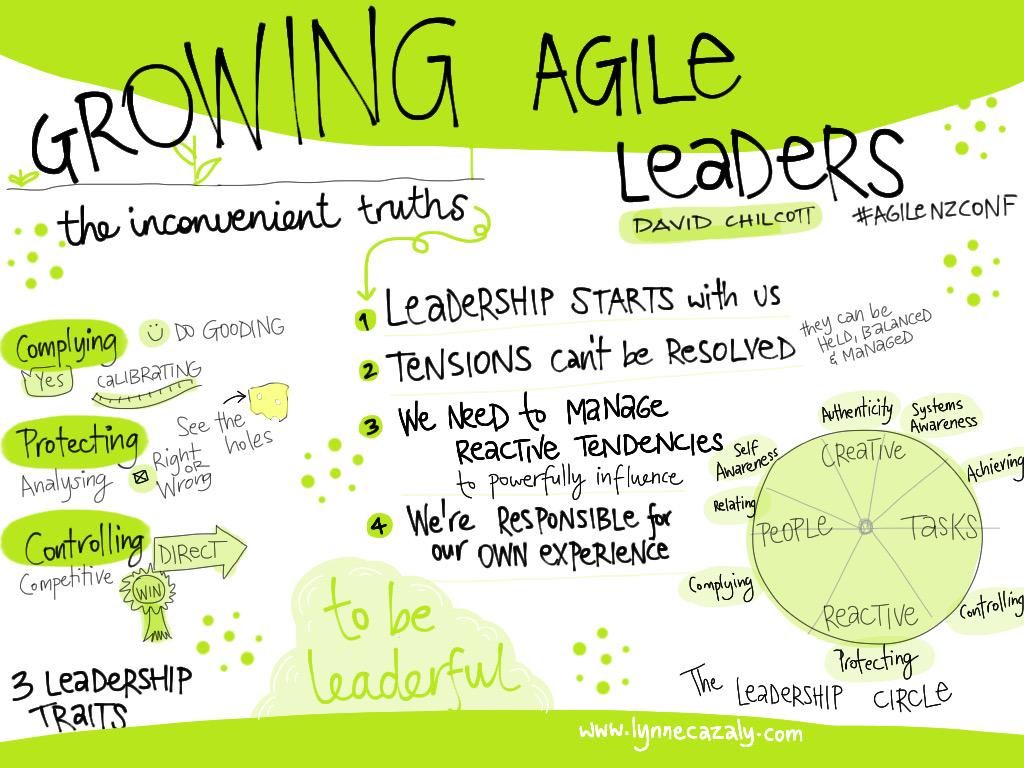 GROWING AGILE
LEADERS
the inconvenient truths
DAVID CHILCOTT
#AGILENZCONF
1 LEADERSHIP STARTS with US
2 TENSIONS can't be RESOLVED
they can be
HELD, BALANCED
& MANAGED
3 We NEED to MANAGE
REACTIVE TENDENCIES
to powerfully influence
4 We're RESPONSIBLE for
our OWN EXPERIENCE
Complying
DO GOODING
Yes
CALIBRATING
Protecting
See the
holes
Analysing
Right
OR
Wrong
Controlling
DIRECT
Competitive
WIN
3 LEADERSHIP
TRAITS
to be
leaderful
Authenticity
Systems
Awareness
Self
Awareness
CREATIVE
Achieving
Relating
PEOPLE
TASKS
Complying
REACTIVE
Controlling
Protecting
The LEADERSHIP CIRCLE
www.lynnecazaly.com